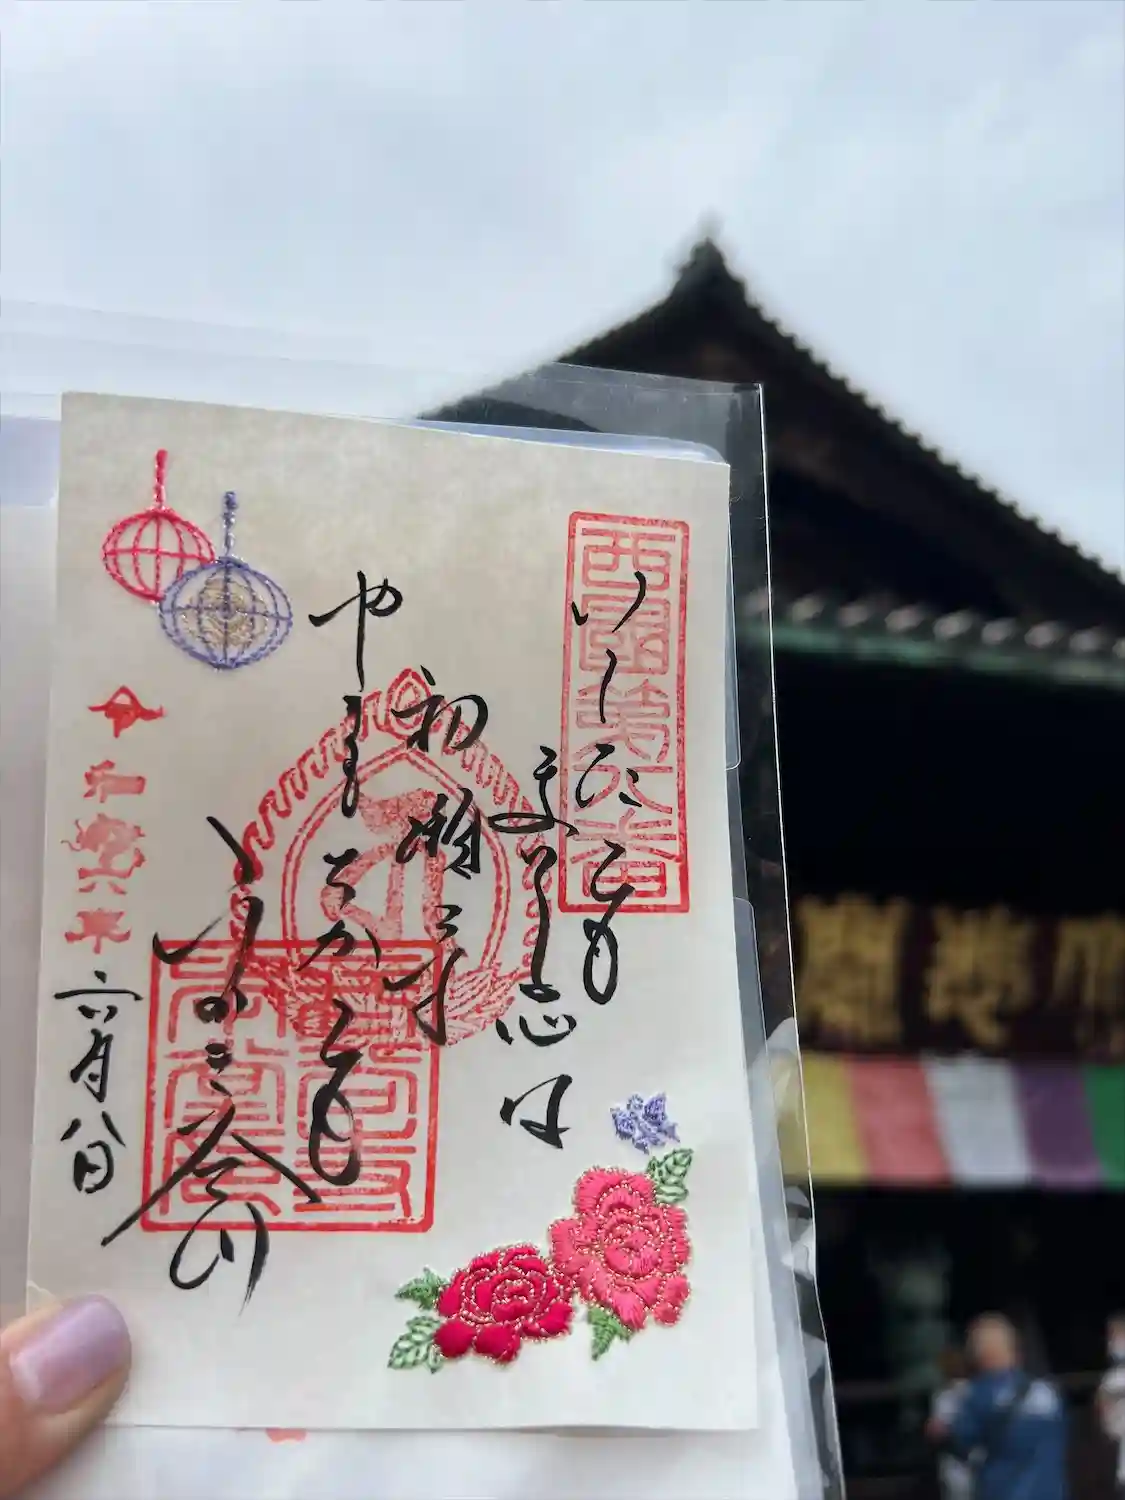 西國第八番
いくたひも
まいる心は
初瀬寺
やまもちかひも
ふかき谷川
令和六年
六月八日
悲閣